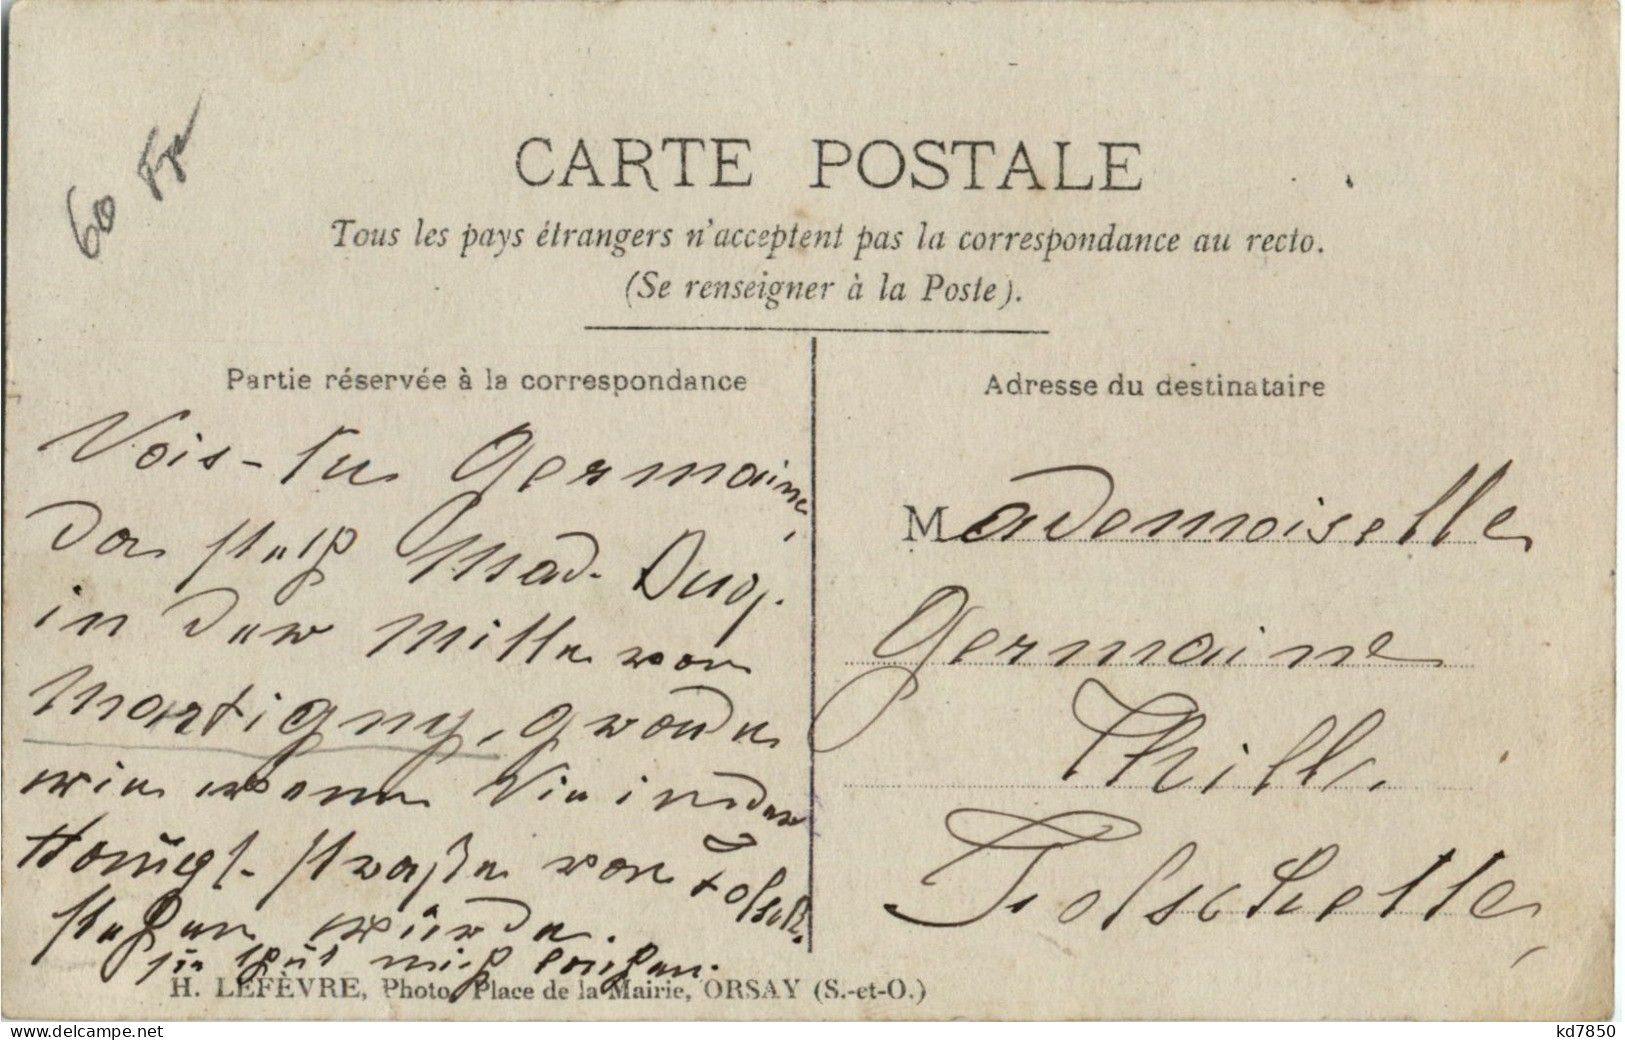 60 Fr
CARTE POSTALE
Tous les pays étrangers n'acceptent pas la correspondance au recto.
(Se renseigner à la Poste).
Partie réservée à la correspondance
Adresse du destinataire
Vois-tu Germaine,
da steht Mad.
in der Mitte von
Martigny, gerade
wie wenn Sie in der
straße von Folsch.
stehen würde.
sie thut mich lachen.
Mademoiselle
Germaine
Thill.
Folschette,
H. LEFÈVRE, Photo, Place de la Mairie, ORSAY (S.-et-O.)
delcampe.net
kd7850